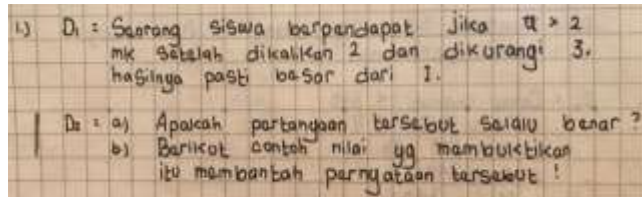 1.) D₁ : Saorang siswa barpandapat jika a > 2
mk satalah dikalikan 2 dan dikurangi 3.
hasilnya pasti basar dari 1.
D₂ : a) Apakah partanyaan tarsabut salalu banar ?
b) Barikot contoh nilai yg mambuktikan
itu mambantah parnyataan tarsabut !